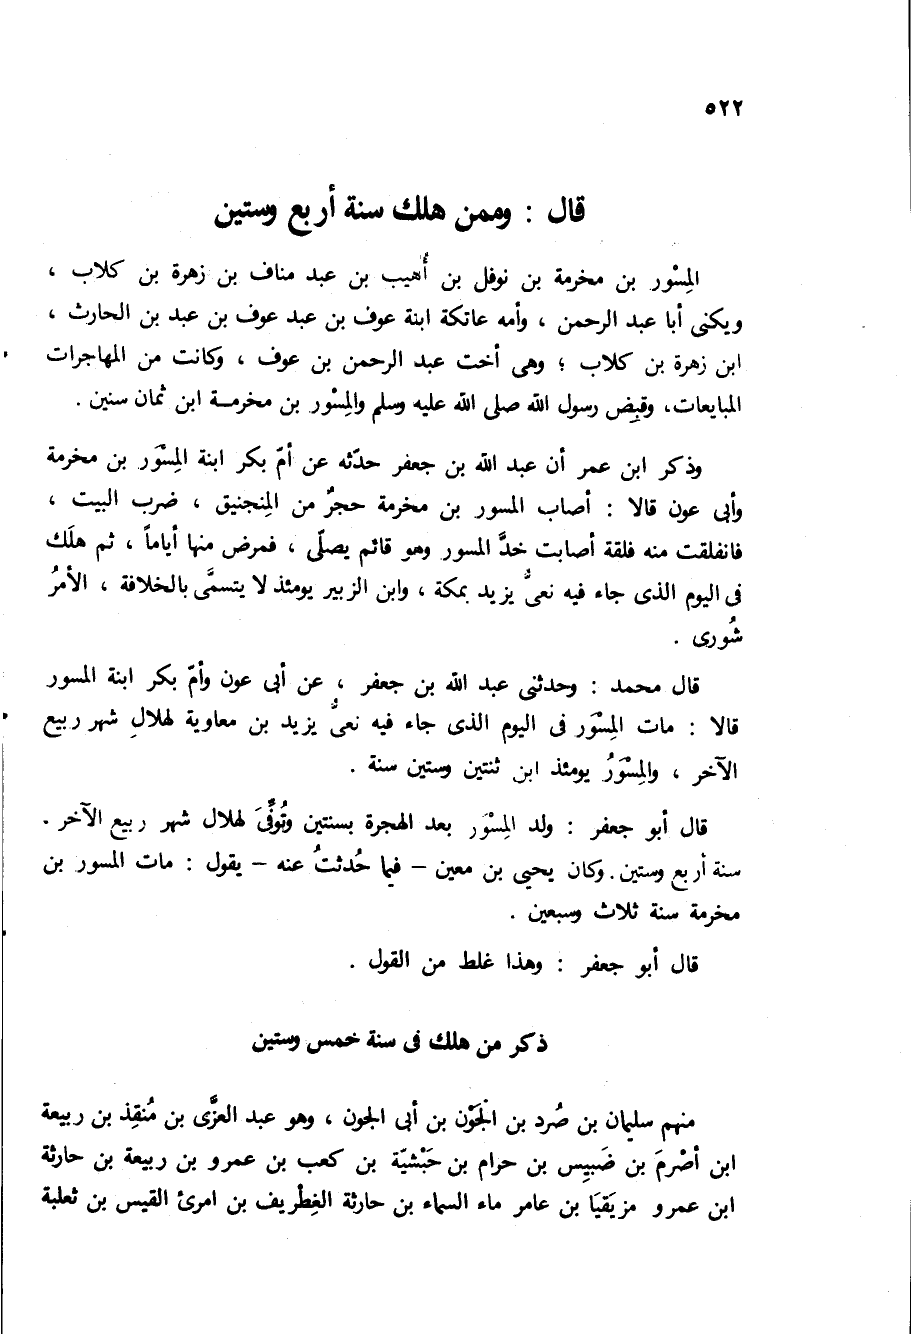 ٥٢٢
قال : وممن هلك سنة أربع وستين
المِسْور بن مخرمة بن نوفل بن أُهيب بن عبد مناف بن زهرة بن كلاب ،
ويكنى أبا عبد الرحمن ، وأمه عاتكة ابنة عوف بن عبد عوف بن عبد بن الحارث ،
ابن زهرة بن كلاب ؛ وهى أخت عبد الرحمن بن عوف ، وكانت من المهاجرات
المبايعات، وقبِض رسول الله صلى الله عليه وسلم والمِسْور بن مخرمــة ابن ثمان سنين .
وذكر ابن عمر أن عبد الله بن جعفر حدّثه عن أمّ بكر ابنة المِسْوَر بن مخرمة
وأبى عون قالا : أصاب المسور بن مخرمة حجرٌ من المِنجنيق ، ضرب البيت ،
فانفلقت منه فلقة أصابت خدَّ المسور وهو قائم يصلّى ، فمرض منها أياماً ، ثم هلَك
فى اليوم الذى جاء فيه نعىُّ يزيد بمكة ، وابن الزبير يومئذ لا يتسمَّى بالخلافة ، الأمرُ
شُورى .
قال محمد : وحدثنى عبد الله بن جعفر ، عن أبى عون وأمّ بكر ابنة المسور
قالا : مات المِسْوَر فى اليوم الذى جاء فيه نعىُّ يزيد بن معاوية لهلالِ شهر ربيع
الآخر ، والمِسْوَرُ يومئذ ابن ثنتين وستين سنة .
قال أبو جعفر : ولد المِسْوَر بعد الهجرة بسنتين وتُوفِّىَ لهلال شهر ربيع الآخر .
سنة أربع وستين. وكان يحيى بن معين – فيما حُدثتُ عنه – يقول : مات المسور بن
مخرمة سنة ثلاث وسبعين .
قال أبو جعفر : وهذا غلط من القول .
ذكر من هلك فى سنة خمس وستين
منهم سليمان بن صُرد بن الجَوْن بن أبى الجون ، وهو عبد العزَّى بن مُنقِذ بن ربيعة
ابن أصْرمَ بن ضَبِيس بن حرام بن حَبْشيّة بن كعب بن عمرو بن ربيعة بن حارثة
ابن عمرو مزيَقيَا بن عامر ماء السماء بن حارثة الغِطْريف بن امرئ القيس بن ثعلبة